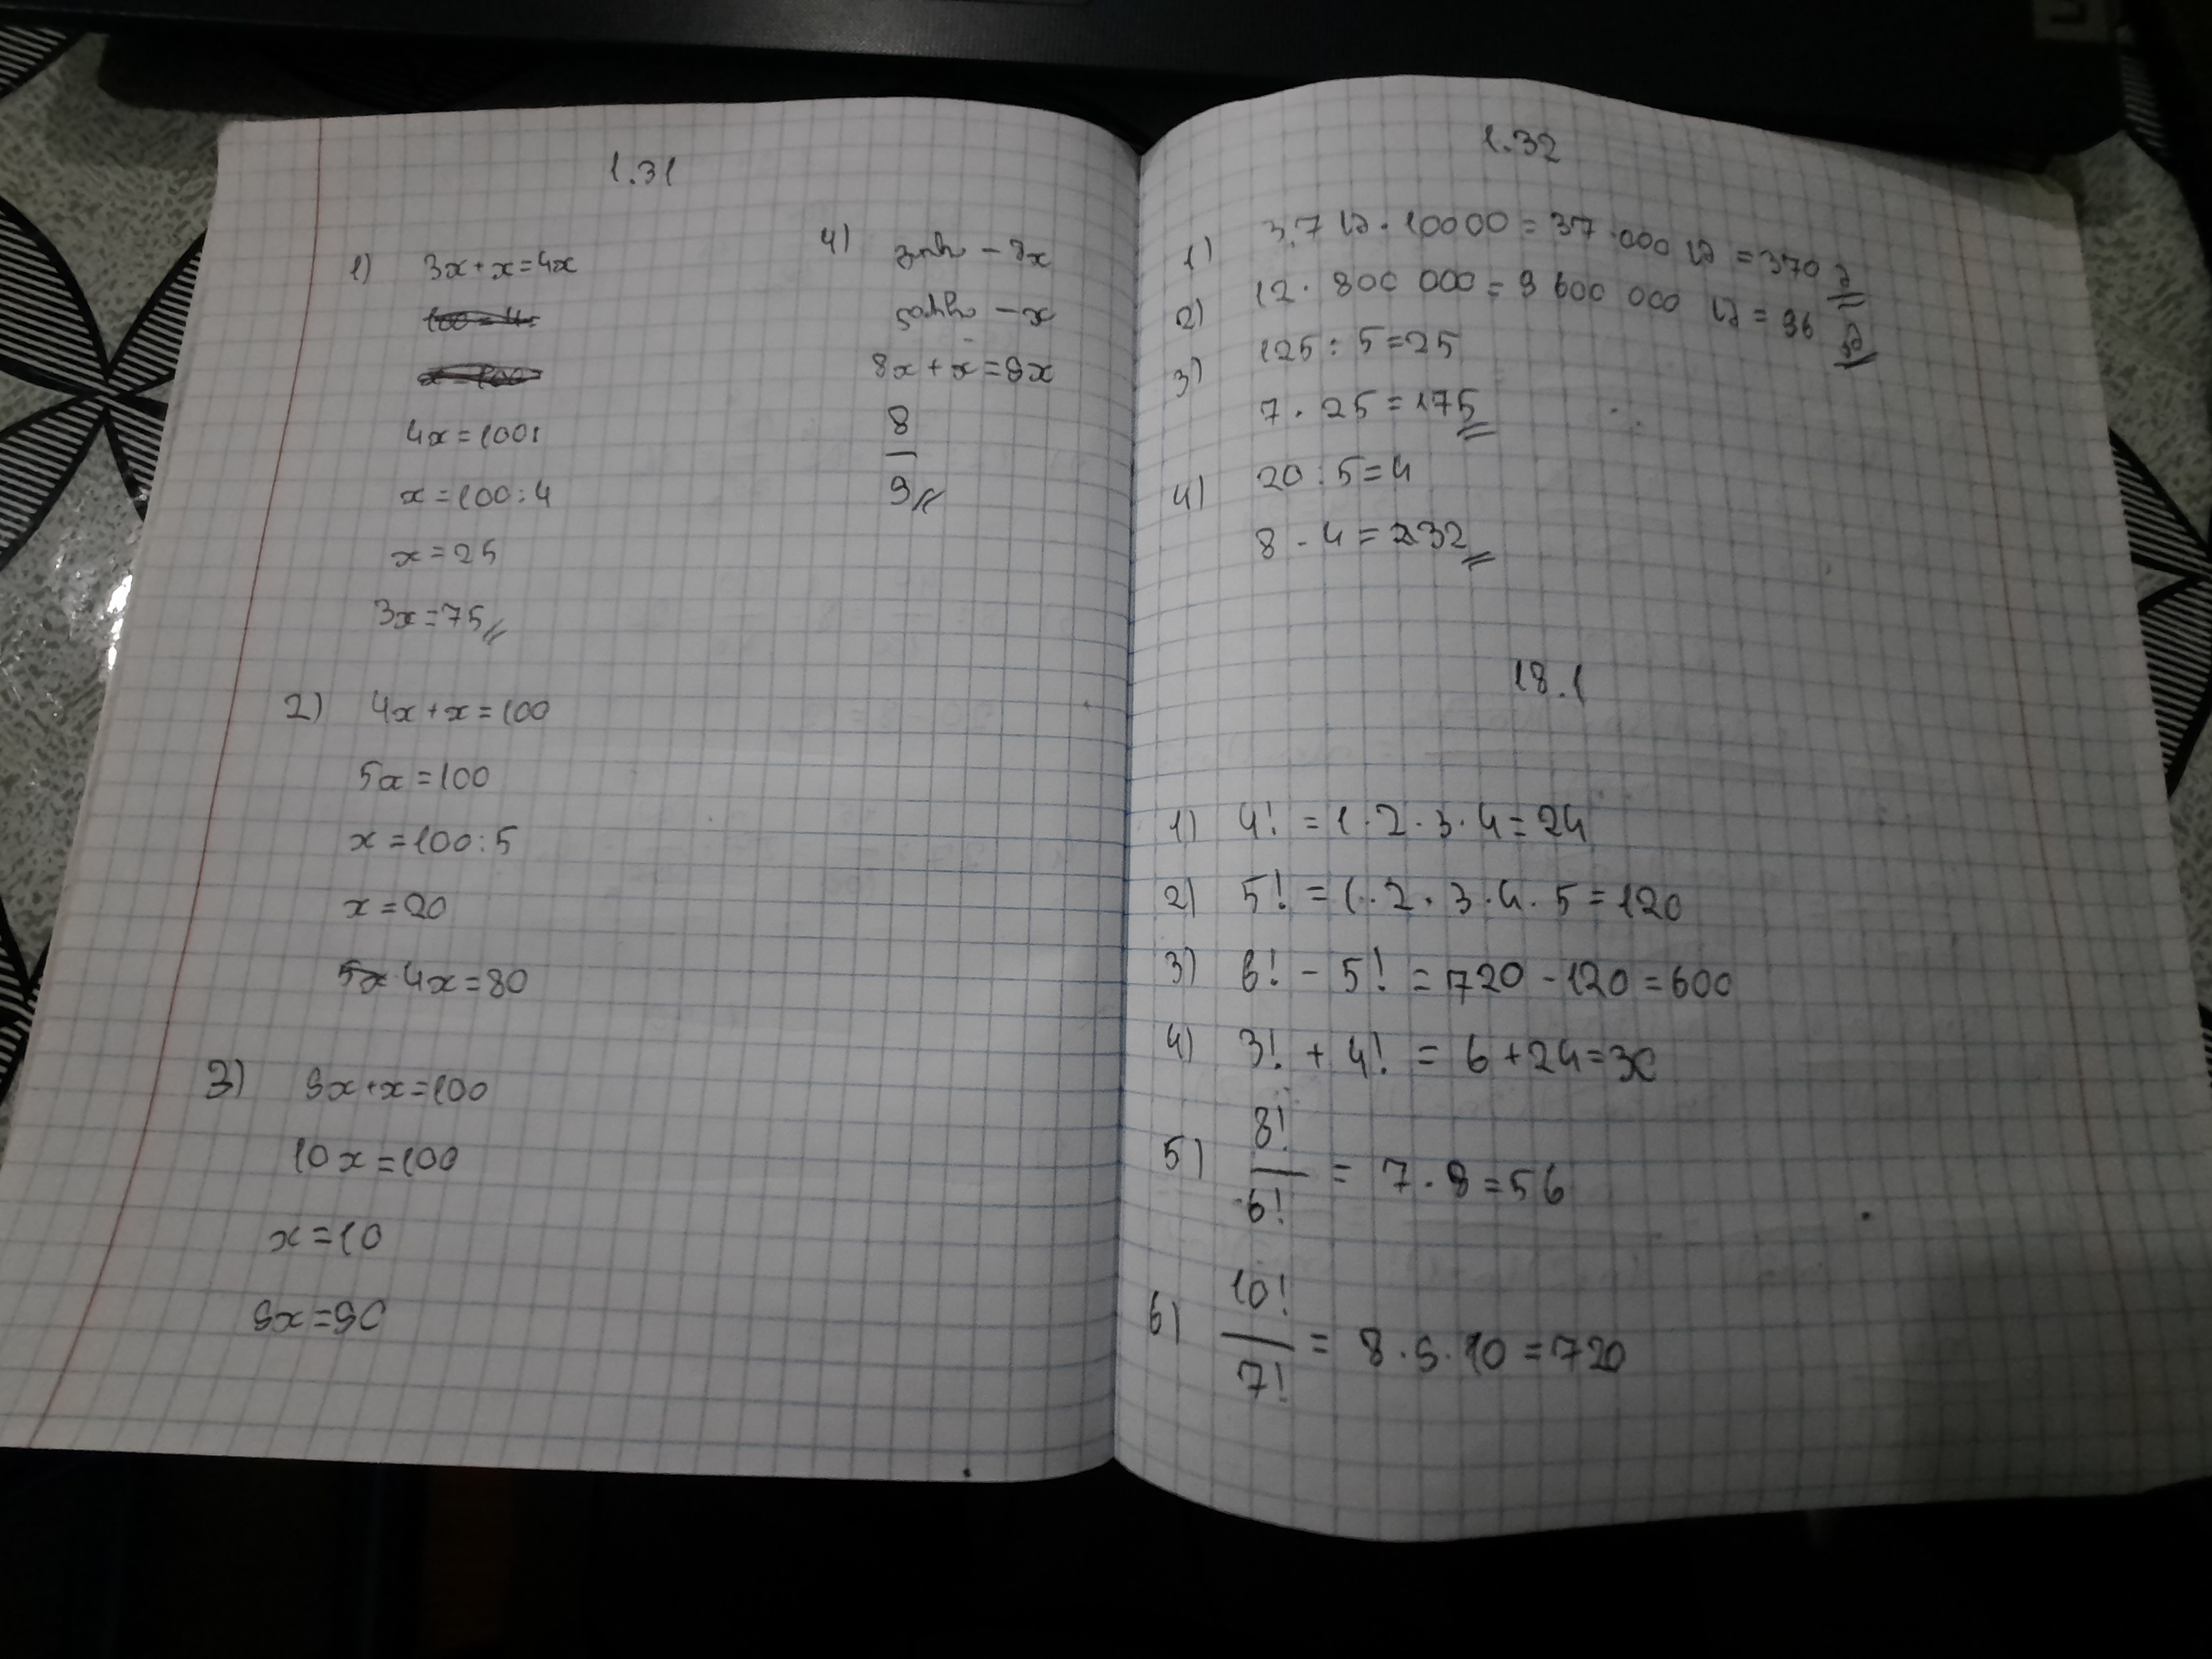 1.31
1) 3x + x = 4x
4x = 100
x = 100 : 4
x = 25
3x = 75
2) 4x + x = 100
5x = 100
x = 100 : 5
x = 20
4x = 80
3) 9x + x = 100
10x = 100
x = 10
9x = 90
4) – 8x
– x
8x + x = 9x
8
9
1.32
1) 3,7 · 10000 = 37 000 = 370
2) 12 · 800 000 = 9 600 000 = 96
3) 125 : 5 = 25
7 · 25 = 175
4) 20 : 5 = 4
8 · 4 = 232
18.1
1) 4! = 1 · 2 · 3 · 4 = 24
2) 5! = 1 · 2 · 3 · 4 · 5 = 120
3) 6! - 5! = 720 - 120 = 600
4) 3! + 4! = 6 + 24 = 30
5) 8!
6! = 7 · 8 = 56
6) 10!
7! = 8 · 9 · 10 = 720